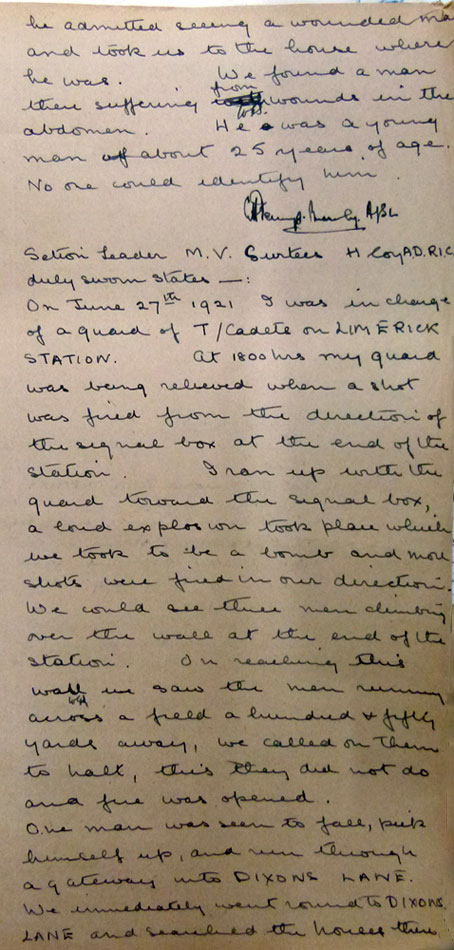 he admitted seeing a wounded ma
and took us to the house where
he was. We found a man
there suffering from wounds in the
abdomen. He was a young
man of about 25 years of age.
No one could identify him.
Section Leader M. V. Surtees H Coy AD. RIC
duly sworn states —:
On June 27th 1921 I was in charge
of a guard of T/Cadets on LIMERICK
STATION. At 1800 hrs my guard
was being relieved when a shot
was fired from the direction of
the signal box at the end of the
station. I ran up with the
guard toward the signal box,
a loud explosion took place which
we took to be a bomb and more
shots were fired in our direction.
We could see three men climbing
over the wall at the end of the
station. On reaching this
wall we saw the men running
across a field a hundred & fifty
yards away, we called on them
to halt, this they did not do
and fire was opened.
One man was seen to fall, pick
himself up, and run through
a gateway into DIXONS LANE.
We immediately went round to DIXONS
LANE and searched the houses there